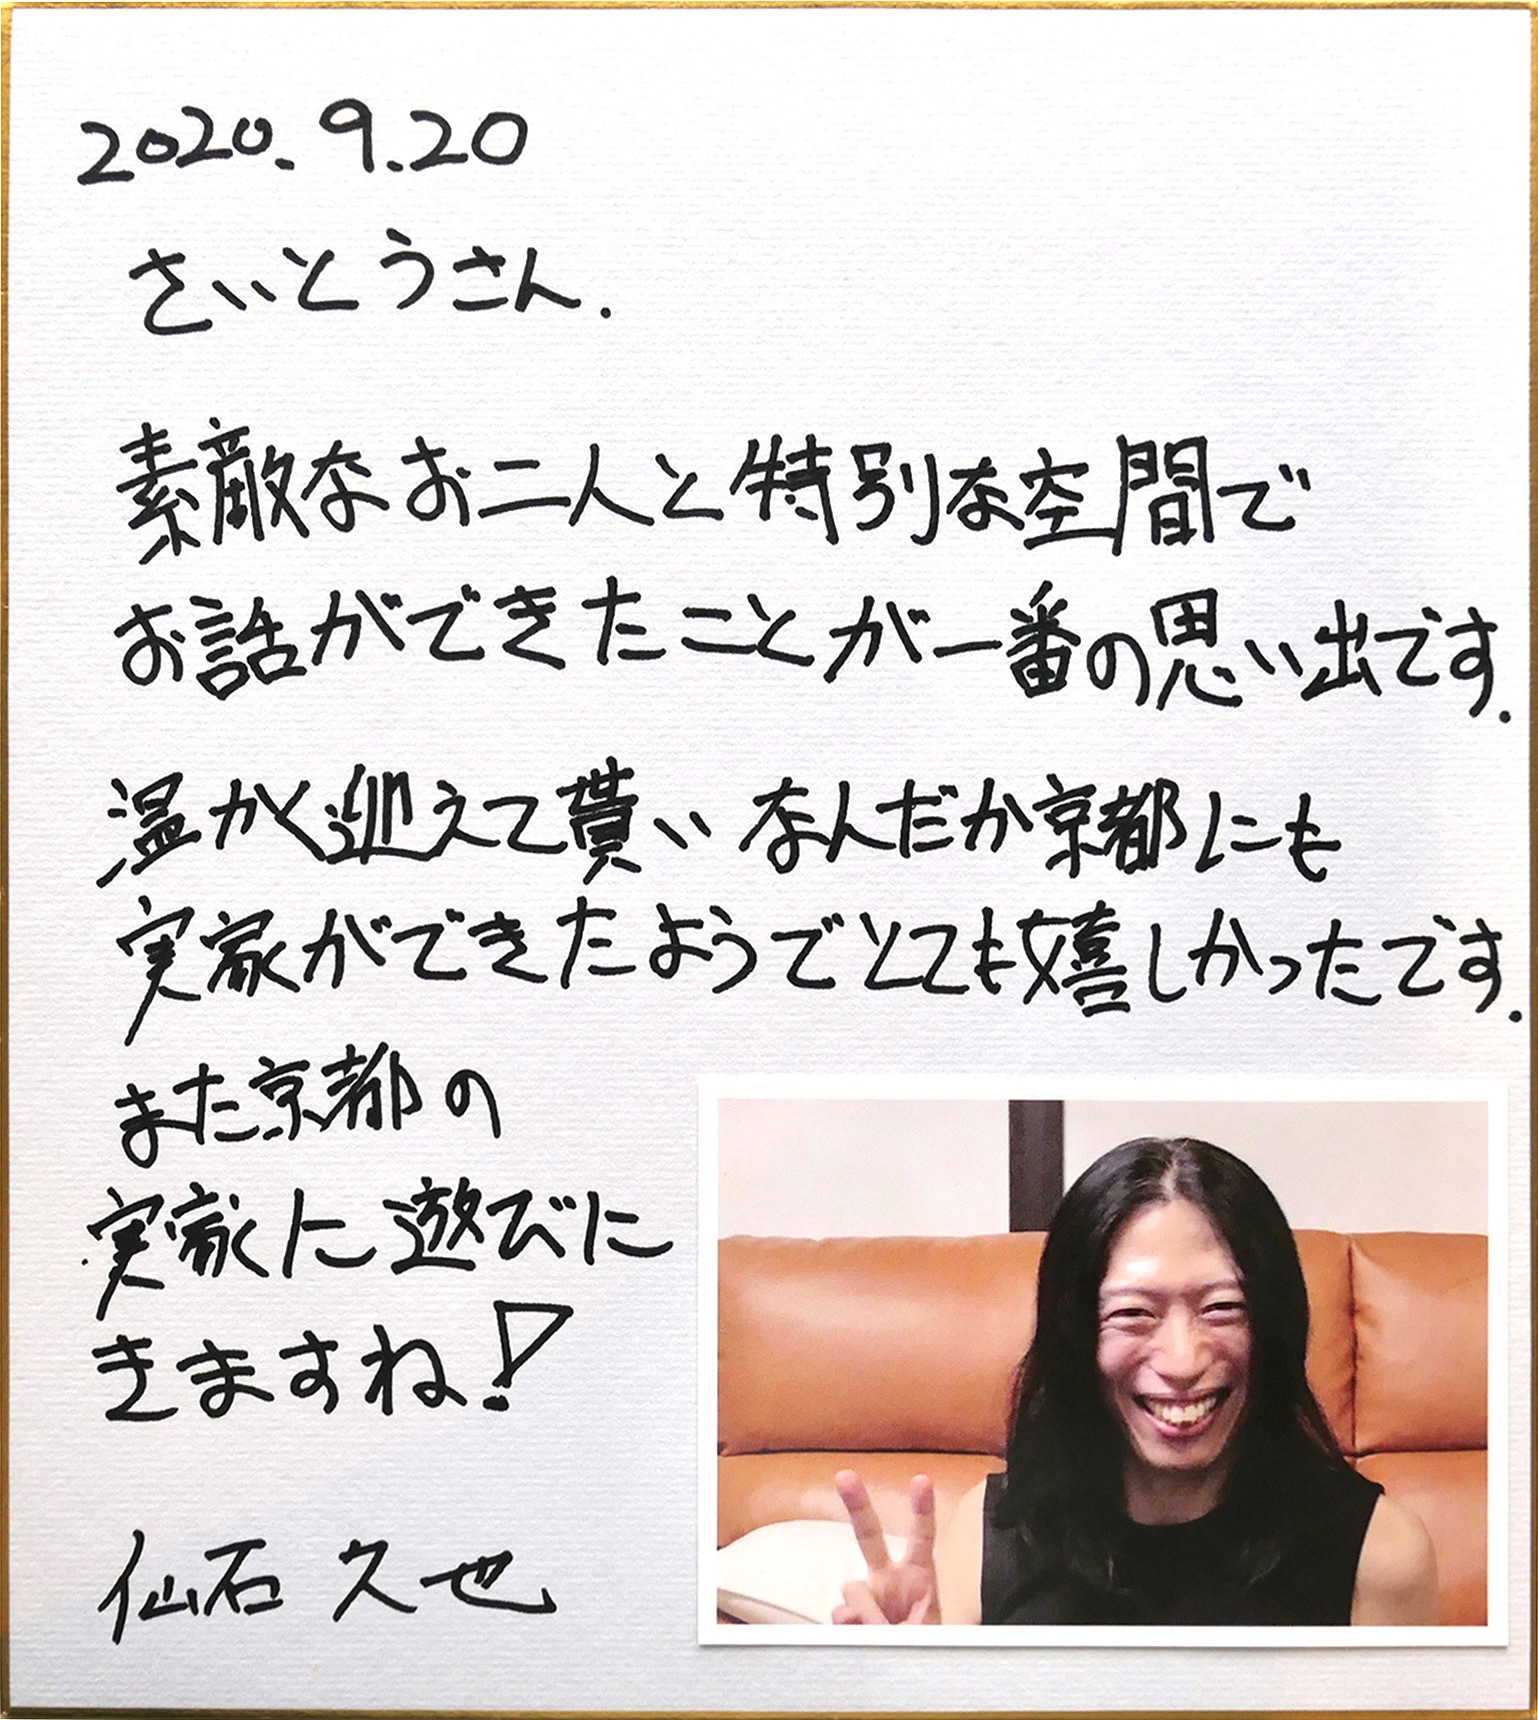 2020.9.20
さいとうさん.
素敵なお二人と特別な空間で
お話ができたことが一番の思い出です.
温かく迎えて貰い なんだか京都にも
実家ができたようでとても嬉しかったです.
また京都の
実家に遊びに
きますね!
仙石 久也